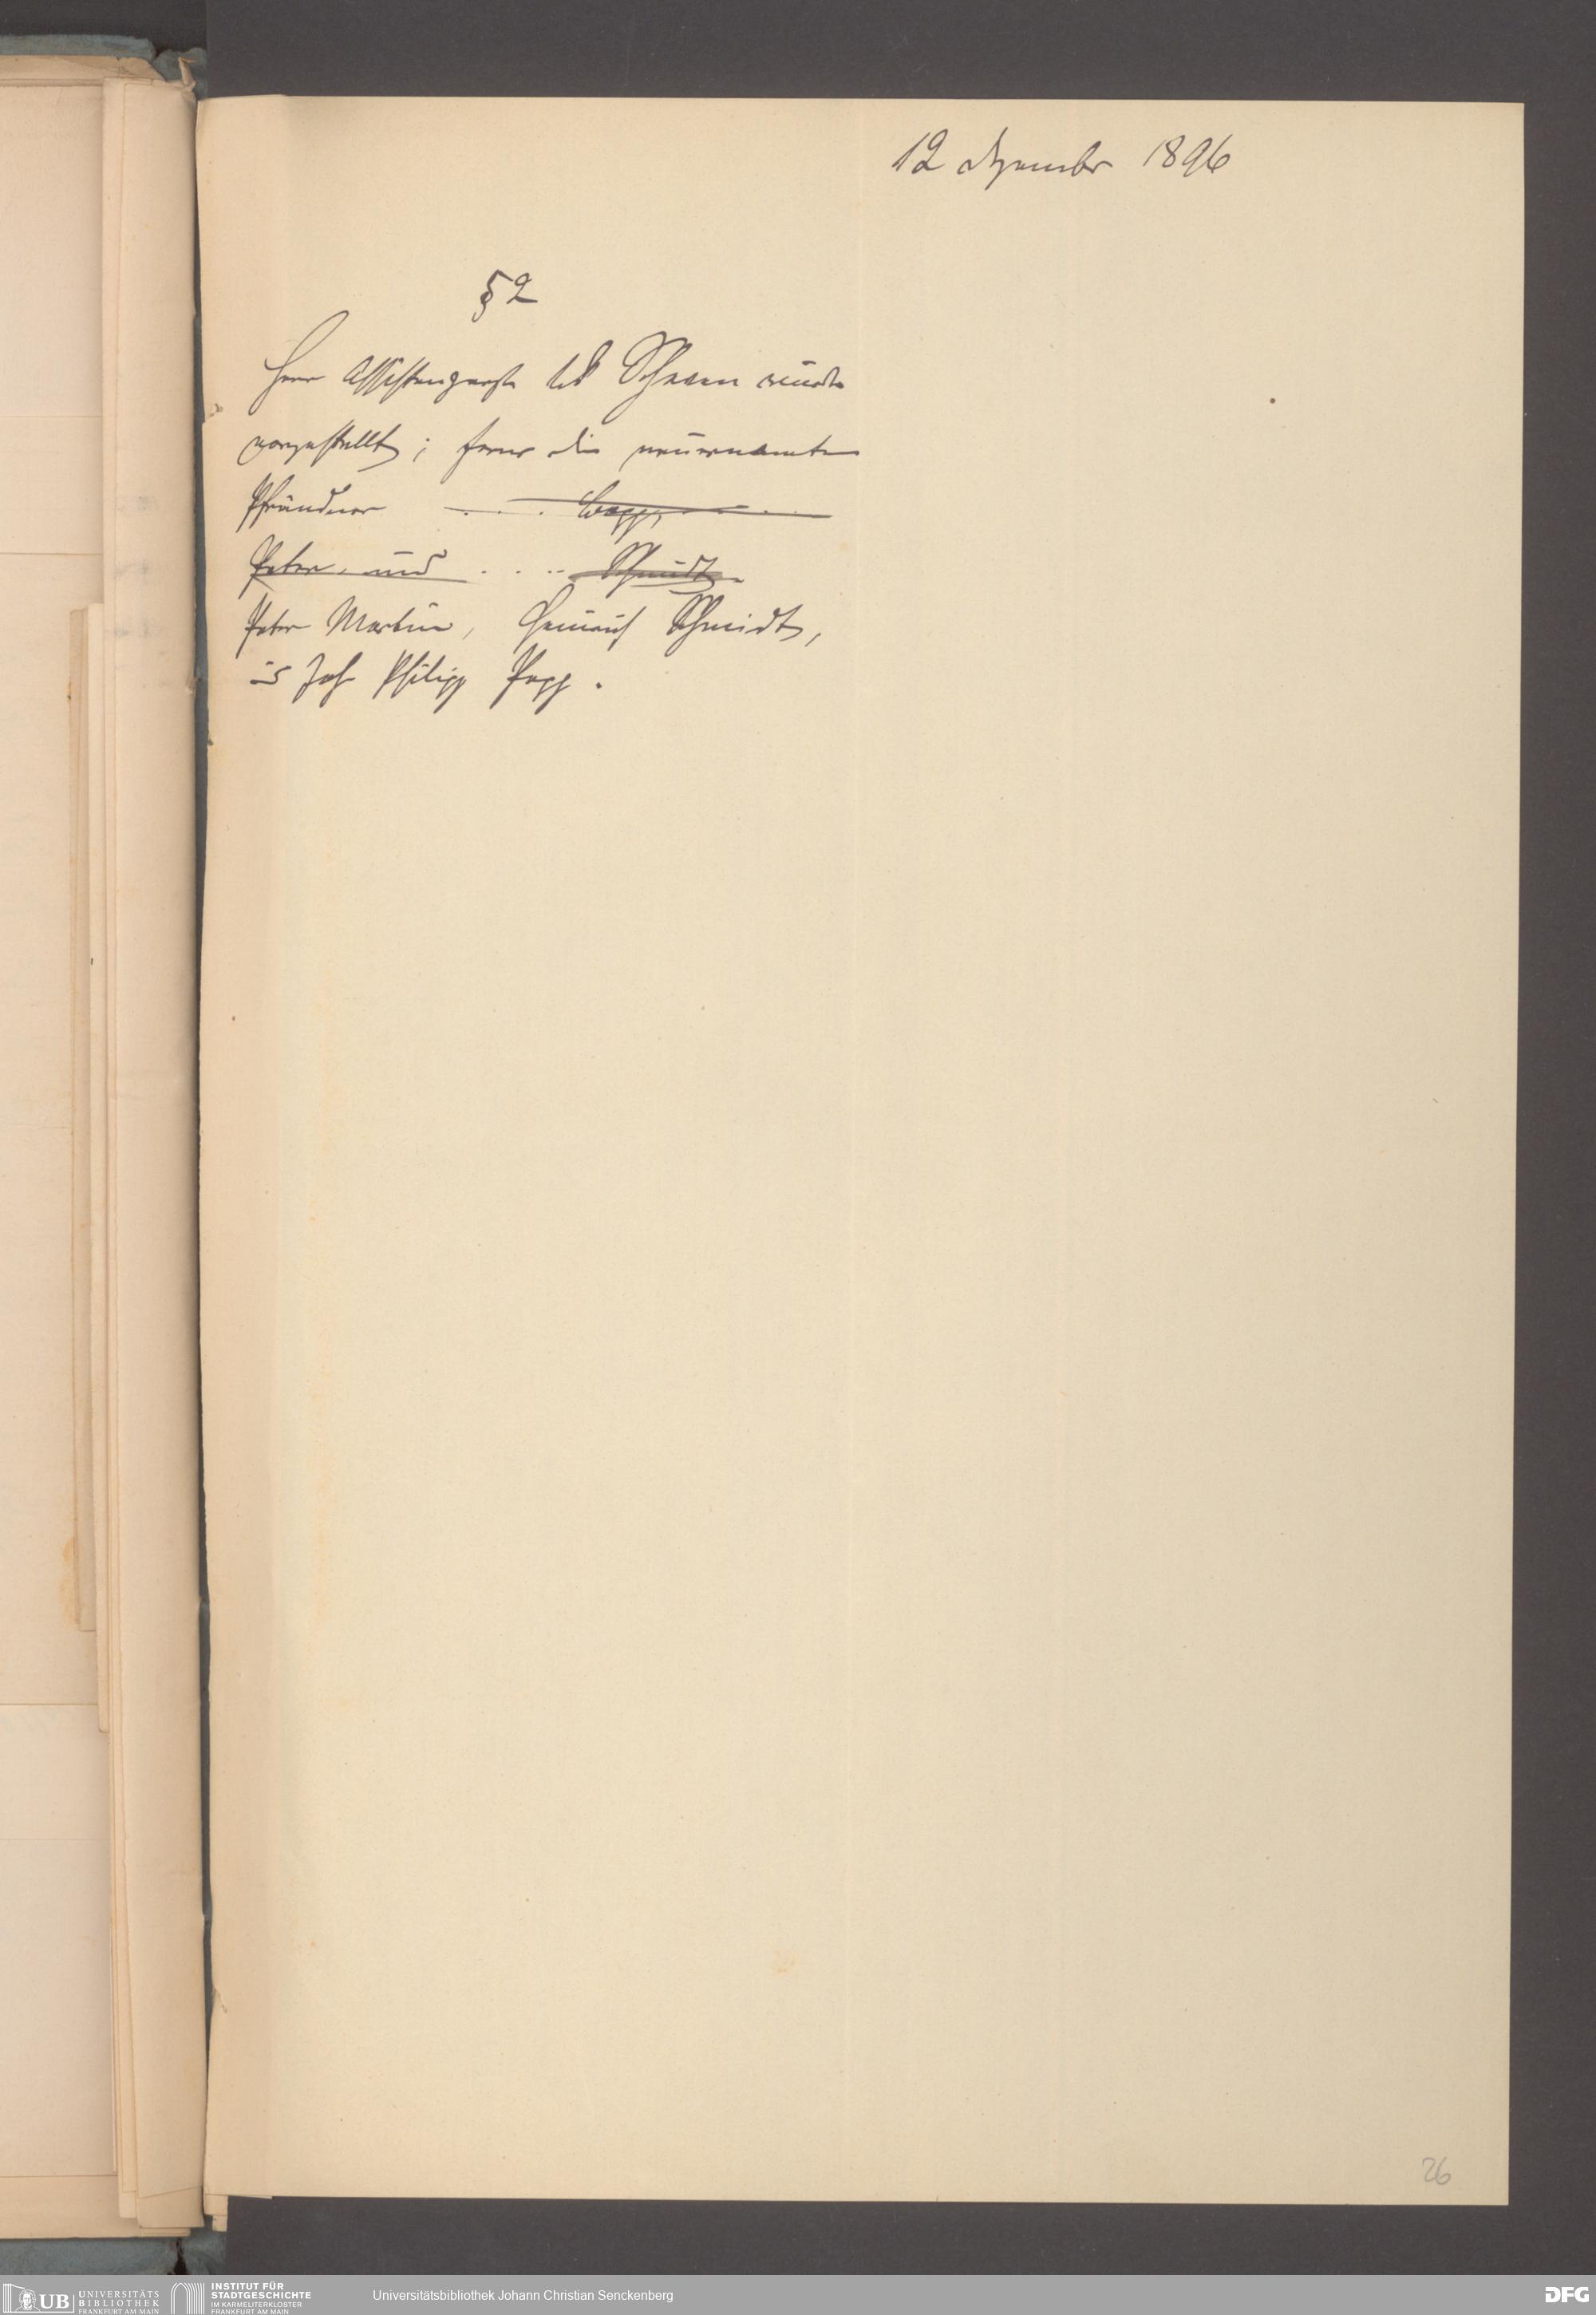 12 Dezember 1896
§ 2
Herr Assistenzarzt Schramm wurde
vorgestellt; ferner die neuernannten
Pfründner
Peter und Schmidt
Peter Martin, Heinrich Schmidt,
u Joh Philipp Popp.
26
UB UNIVERSITÄTS BIBLIOTHEK FRANKFURT AM MAIN
INSTITUT FÜR STADTGESCHICHTE IM KARMELITERKLOSTER FRANKFURT AM MAIN
Universitätsbibliothek Johann Christian Senckenberg
DFG